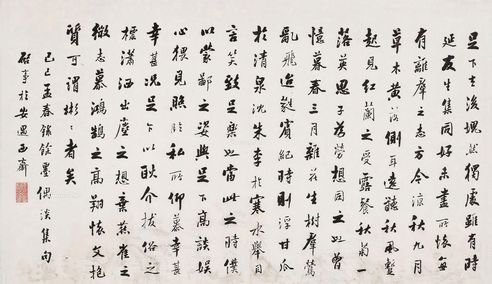 足下去後塊然獨處雖有時
延友生集同好未盡所懷每
有離羣之志方今涼秋九月
草木黃落側耳遠聽秋風聲
起見紅蘭之受露餐秋菊一
落英思子為勞想同之也曾
憶暮春三月雜花生樹羣鶯
亂飛追蕤賓紀時則浮甘瓜
於清泉沈朱李於寒水舉目
言笑致足樂也當此之時僕
以蒙鄙之姿與足下高談娛
心猥見照於私所仰慕幸甚
幸甚況足下以耿介拔俗之
標瀟洒出塵之想棄燕雀之
微志慕鴻鵠之高翔懷文抱
質可謂彬彬者矣
己巳孟春錦餘墨偶淡集句
啟事於安邊西齋